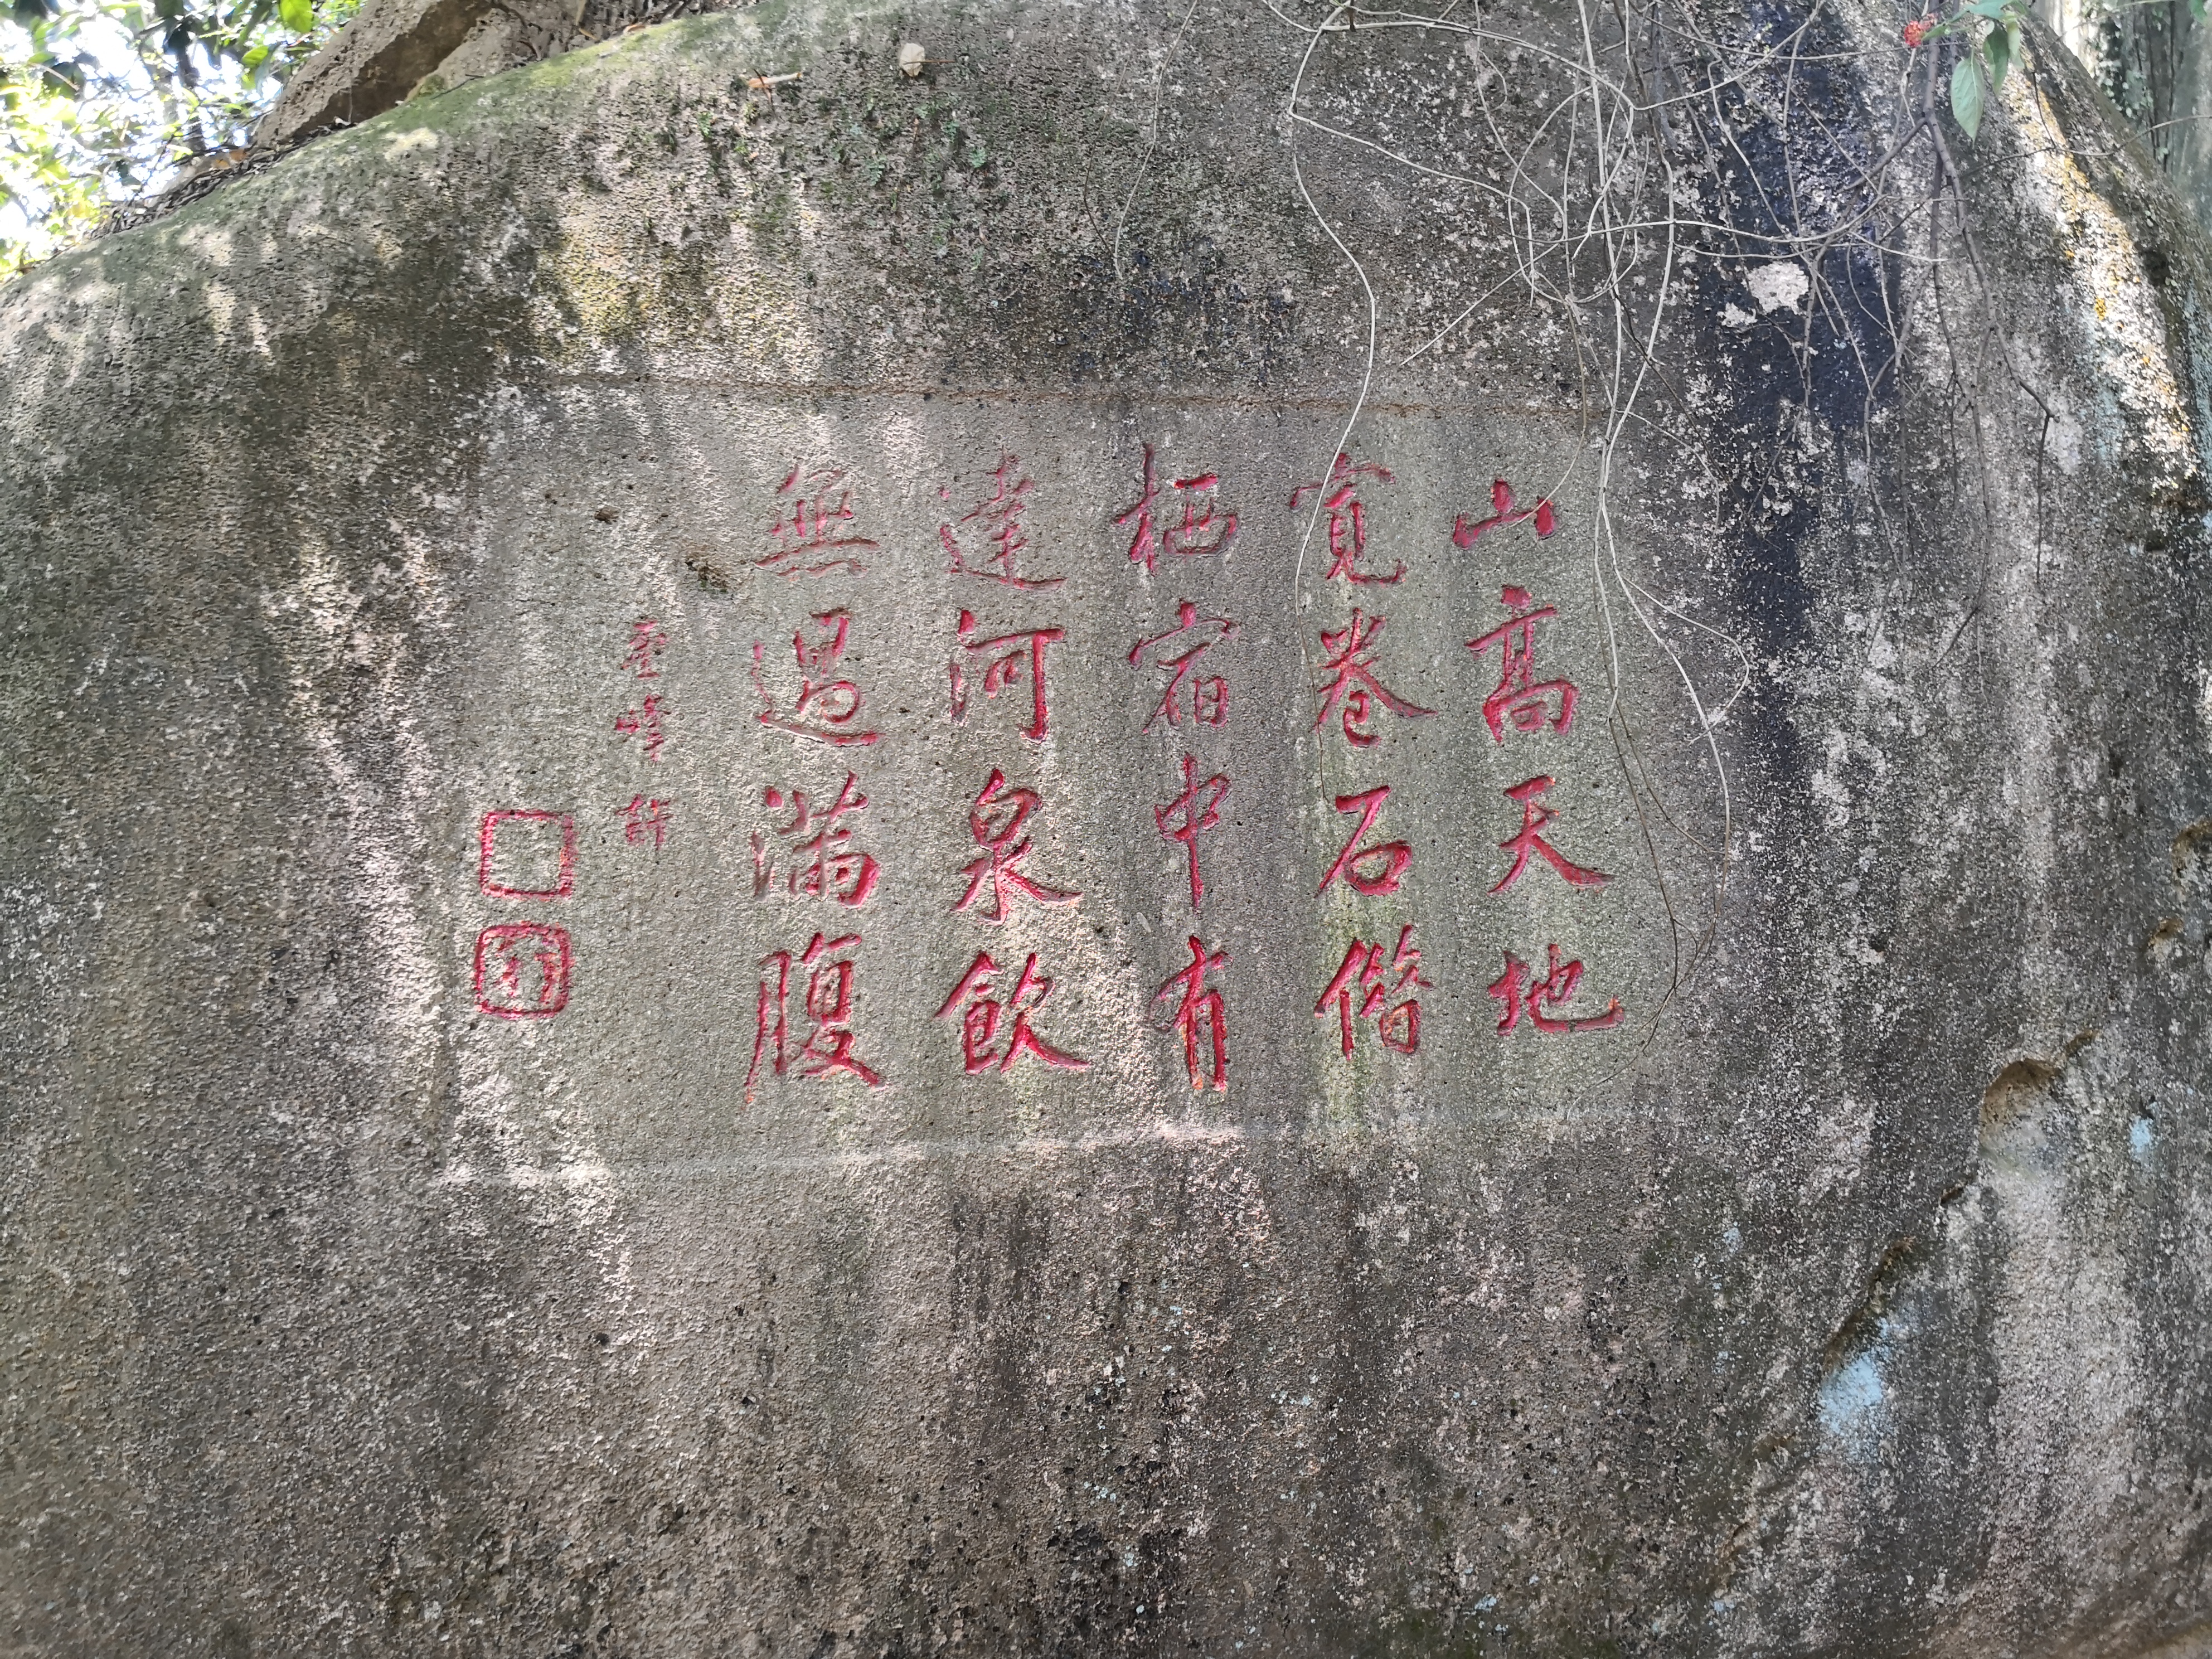 山高天地
寬卷石偕
栖宿中有
達河泉飲
無過滿腹
雲峰